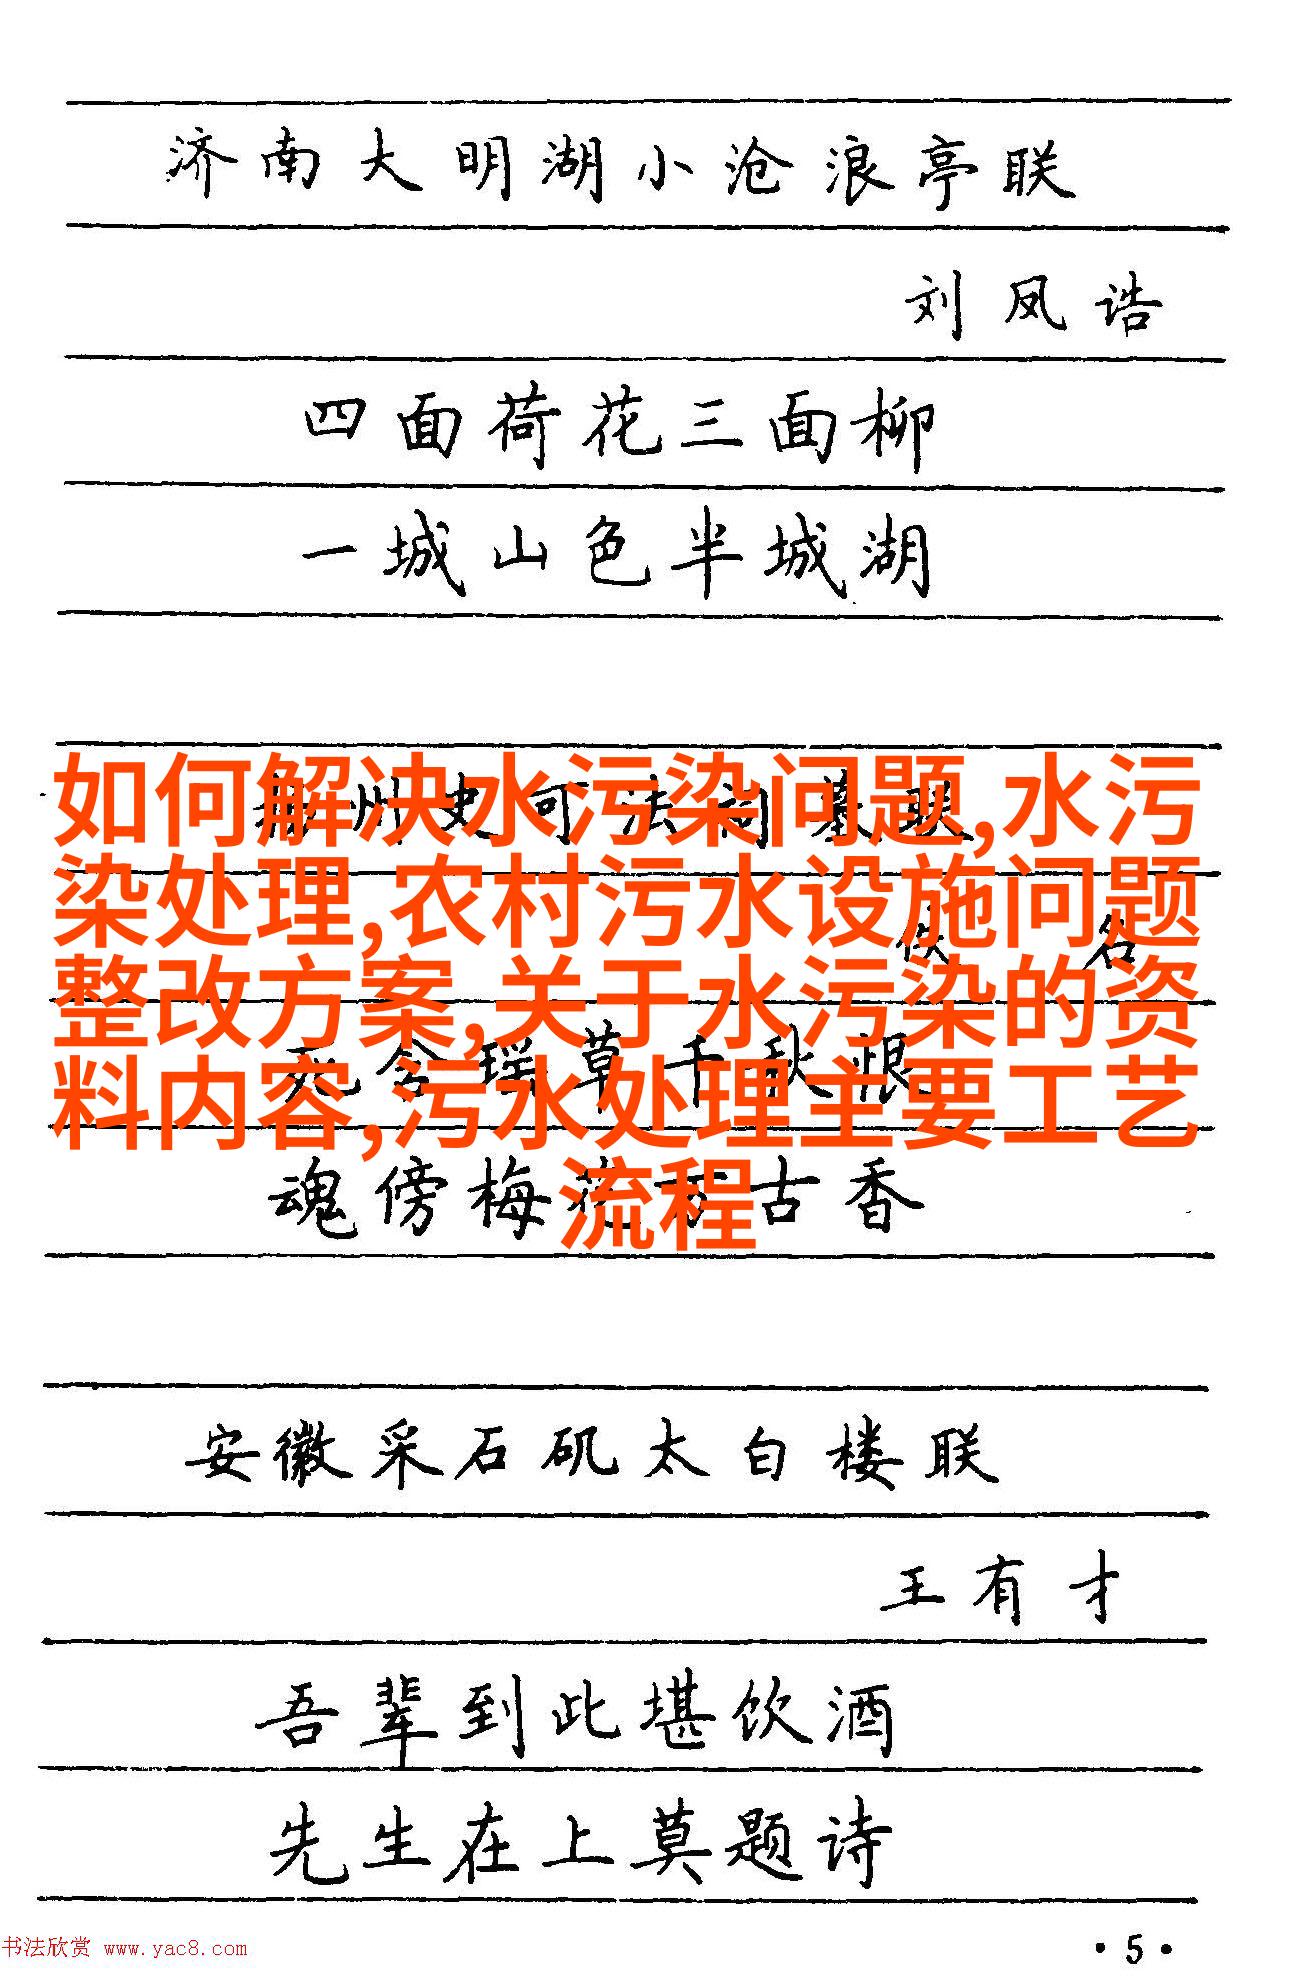 济南大明湖小沧浪亭联
刘凤诰
四面荷花三面柳
一城山色半城湖
州史可法祠墓联
如何解决水污染问题,水污
染处理,农村污水设施问题
佚 名
整改方案,关于水污染的资
死令瑶草千秋恨
料内容,污水处理主要工艺
魂傍梅花万古香
流程
安徽采石矶太白楼联
王有才
吾辈到此堪饮酒
先生在上莫题诗
书法欣赏 www.yac8.com
·5·